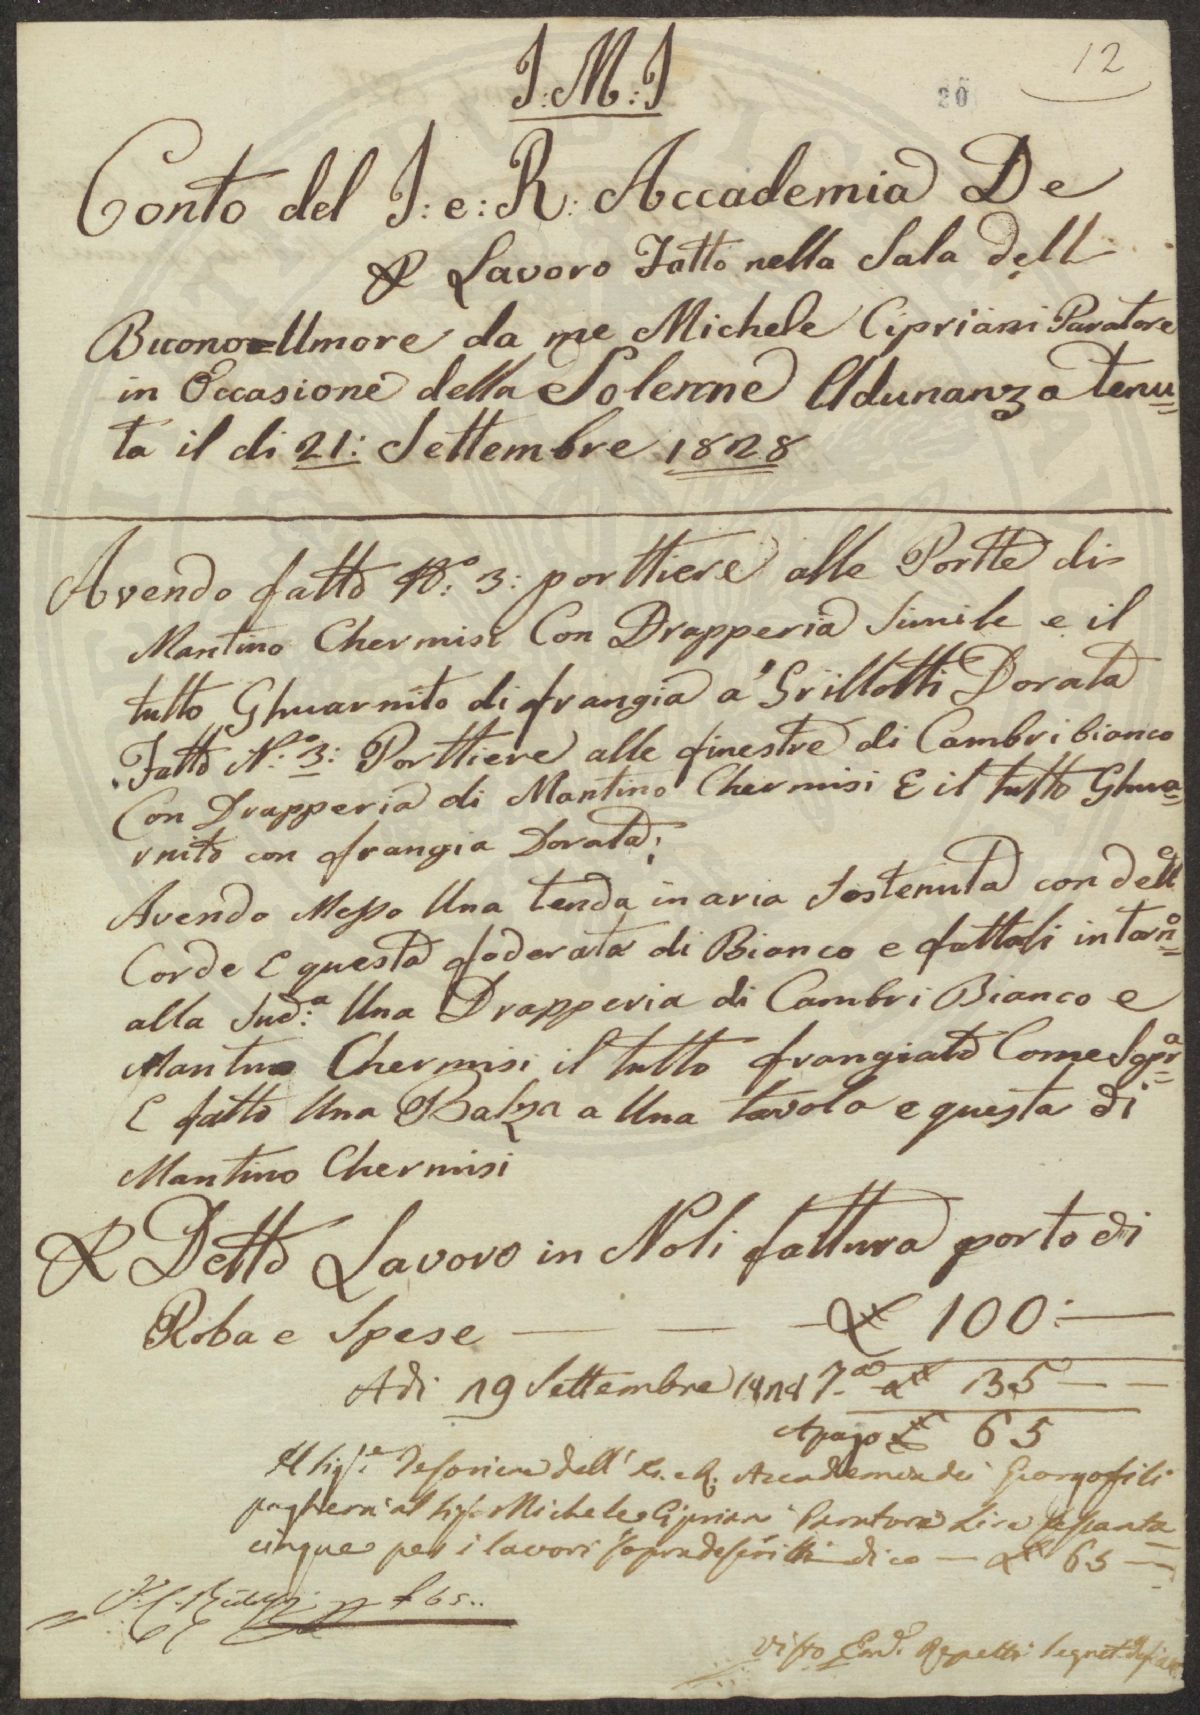 12
20
J:M:J
Conto del J: e: R: Accademia De
P Lavoro Fatto nella Sala dell
Buono=Umore da me Michele Cipriani Paratore
in Occasione della Solenne Adunanza tenu=
ta il di 21: Settembre 1828
Avendo fatto No: 3: porttiere alle Portte di
Mantino Chermisi Con Drapperia Simile e il
tutto Ghuarnito di frangia a Grillotti Dorata
Fatto No: 3: Porttiere alle finestre di Cambri bianco
Con Drapperia di Mantino Chermisi E il tutto Ghua=
rnito con frangia Dorata;
Avendo Messo Una tenda in aria Sostenuta con delle
Corde E questa foderata di Bianco e fattoli intorno=
alla Suda: Una Drapperia di Cambri Bianco e
Mantino Chermisi il tutto frangiato Come Sopra=
E fatto Una Balza a Una tavola e questa di
Mantino Chermisi
P Detto Lavoro in Noli fattura porto di
Roba e Spese — — — £ 100:—
Adi 19 Settembre 1828 £ 35 — —
£ 65
Il Sigre Tesoriere dell' I. e R. Accademia dei Georgofili
pagherà al Sigr Michele Cipriani Paratore Lire sessanta
cinque per i lavori sopradescritti dico — £ 65 —
£ 65..
Visto Eml. Repetti Segret.